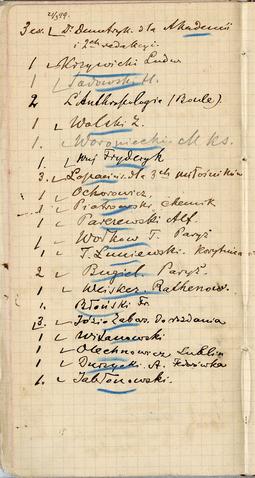 3 ex. Dr Demetryk. dla Akademii
i 2ch redakcyi.
1 Krzywicki Ludw.
1 Sadowski H.
2 L'Anthropologie (Boule)
1 Wolski Z.
1 Woroniecki M ks.
1. Fryderyk
3. dla 3ch miłośników
1 Ochorowicz.
1 Piotrowski chemik
1 Parczewski Alf.
1 Wołkow T. Paryż
1 T. Łuniewski. Korytnica
2 Bugiel. Paryż.
1 Weisker. Rathenow.
1. Błoński Fr.
3. Józio Zabor. Do rozdania
1 Witanowski
1 Olechnowicz Lublin
1 A.
1. Jabłonowski.